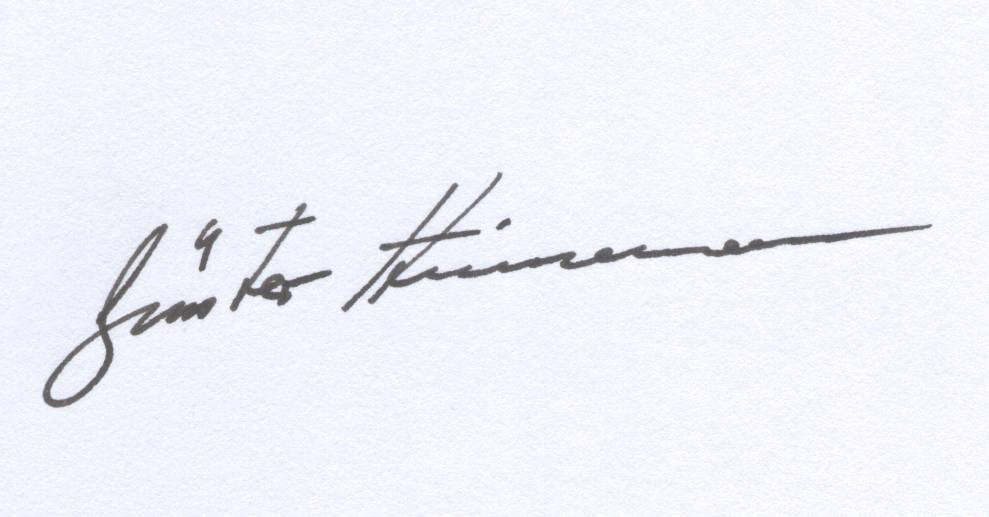 Günter Heinemann